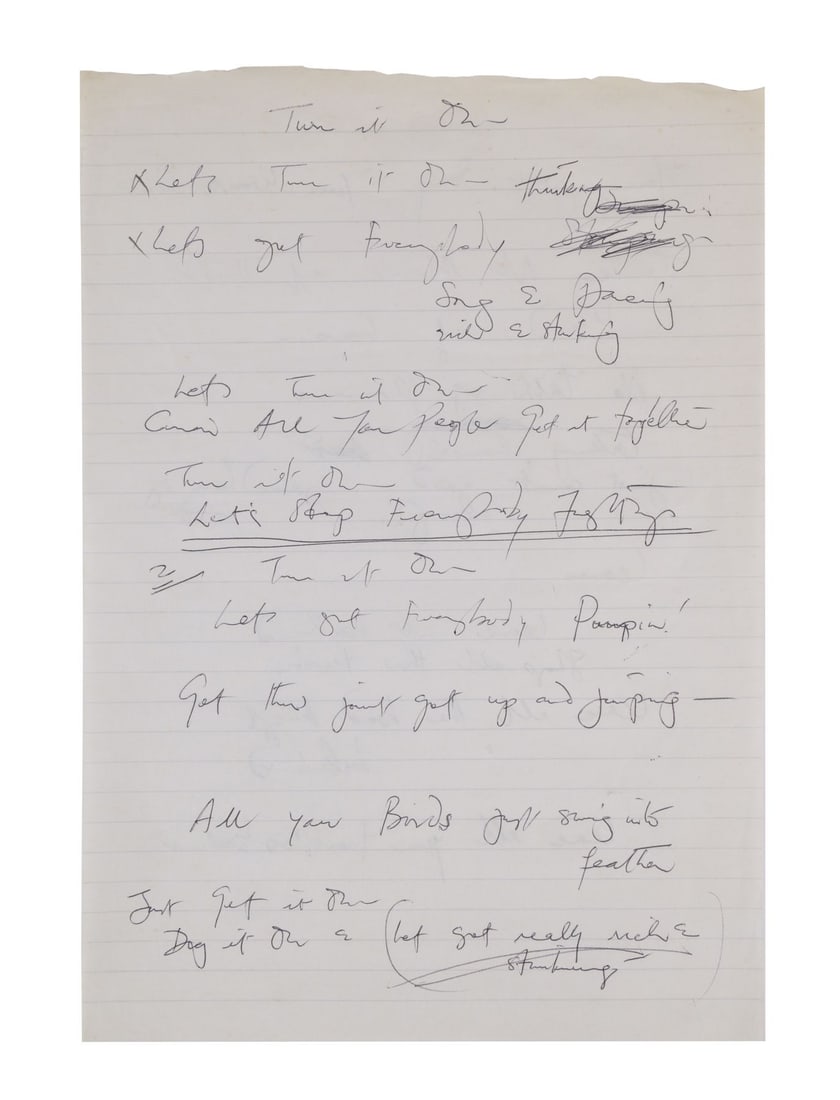 Turn it On —
x Lets Turn it On — thinking
x Lets get Everybody
Song & Dancing
rich & stinking
Lets Turn it On —
C'mon All You People Get it together
Turn it On —
Let's Stop Everybody Fighting
2 Turn it On —
Lets get Everybody Pumpin!
Get this joint get up and jumping —
All you Birds just swing into
feather
Just Get it On —
Dog it On & (Let get really rich &
stinking)